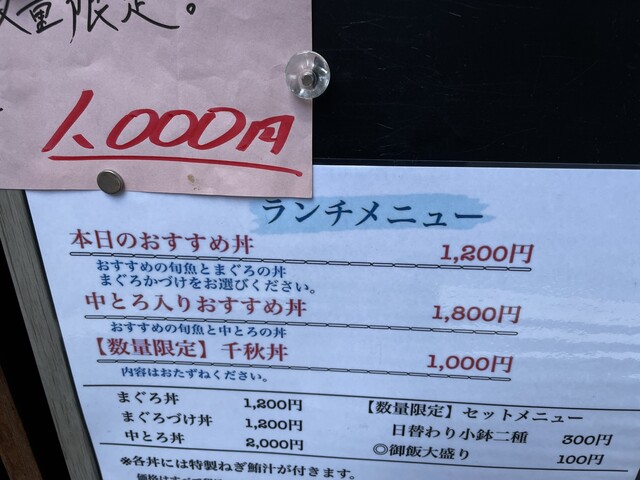 量限定。
1,000円
ランチメニュー
本日のおすすめ丼 1,200円
おすすめの旬魚とまぐろの丼
まぐろかづけをお選びください。
中とろ入りおすすめ丼 1,800円
おすすめの旬魚と中とろの丼
【数量限定】千秋丼 1,000円
内容はおたずねください。
まぐろ丼 1,200円
まぐろづけ丼 1,200円
中とろ丼 2,000円
【数量限定】セットメニュー
日替わり小鉢二種 300円
◎御飯大盛り 100円
※各丼には特製ねぎ鮪汁が付きます。